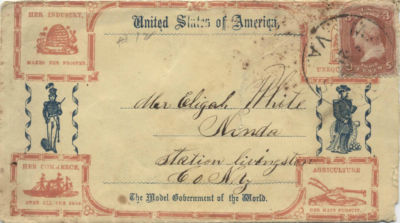 HER INDUSTRY,
MAKES HER PROSPER.
United States of America,
Mr Elijah White
Nunda
Station livingston
Co NY
HER COMMERCE,
OVER ALL THE SEAS
AGRICULTURE
The Model Government of the World.